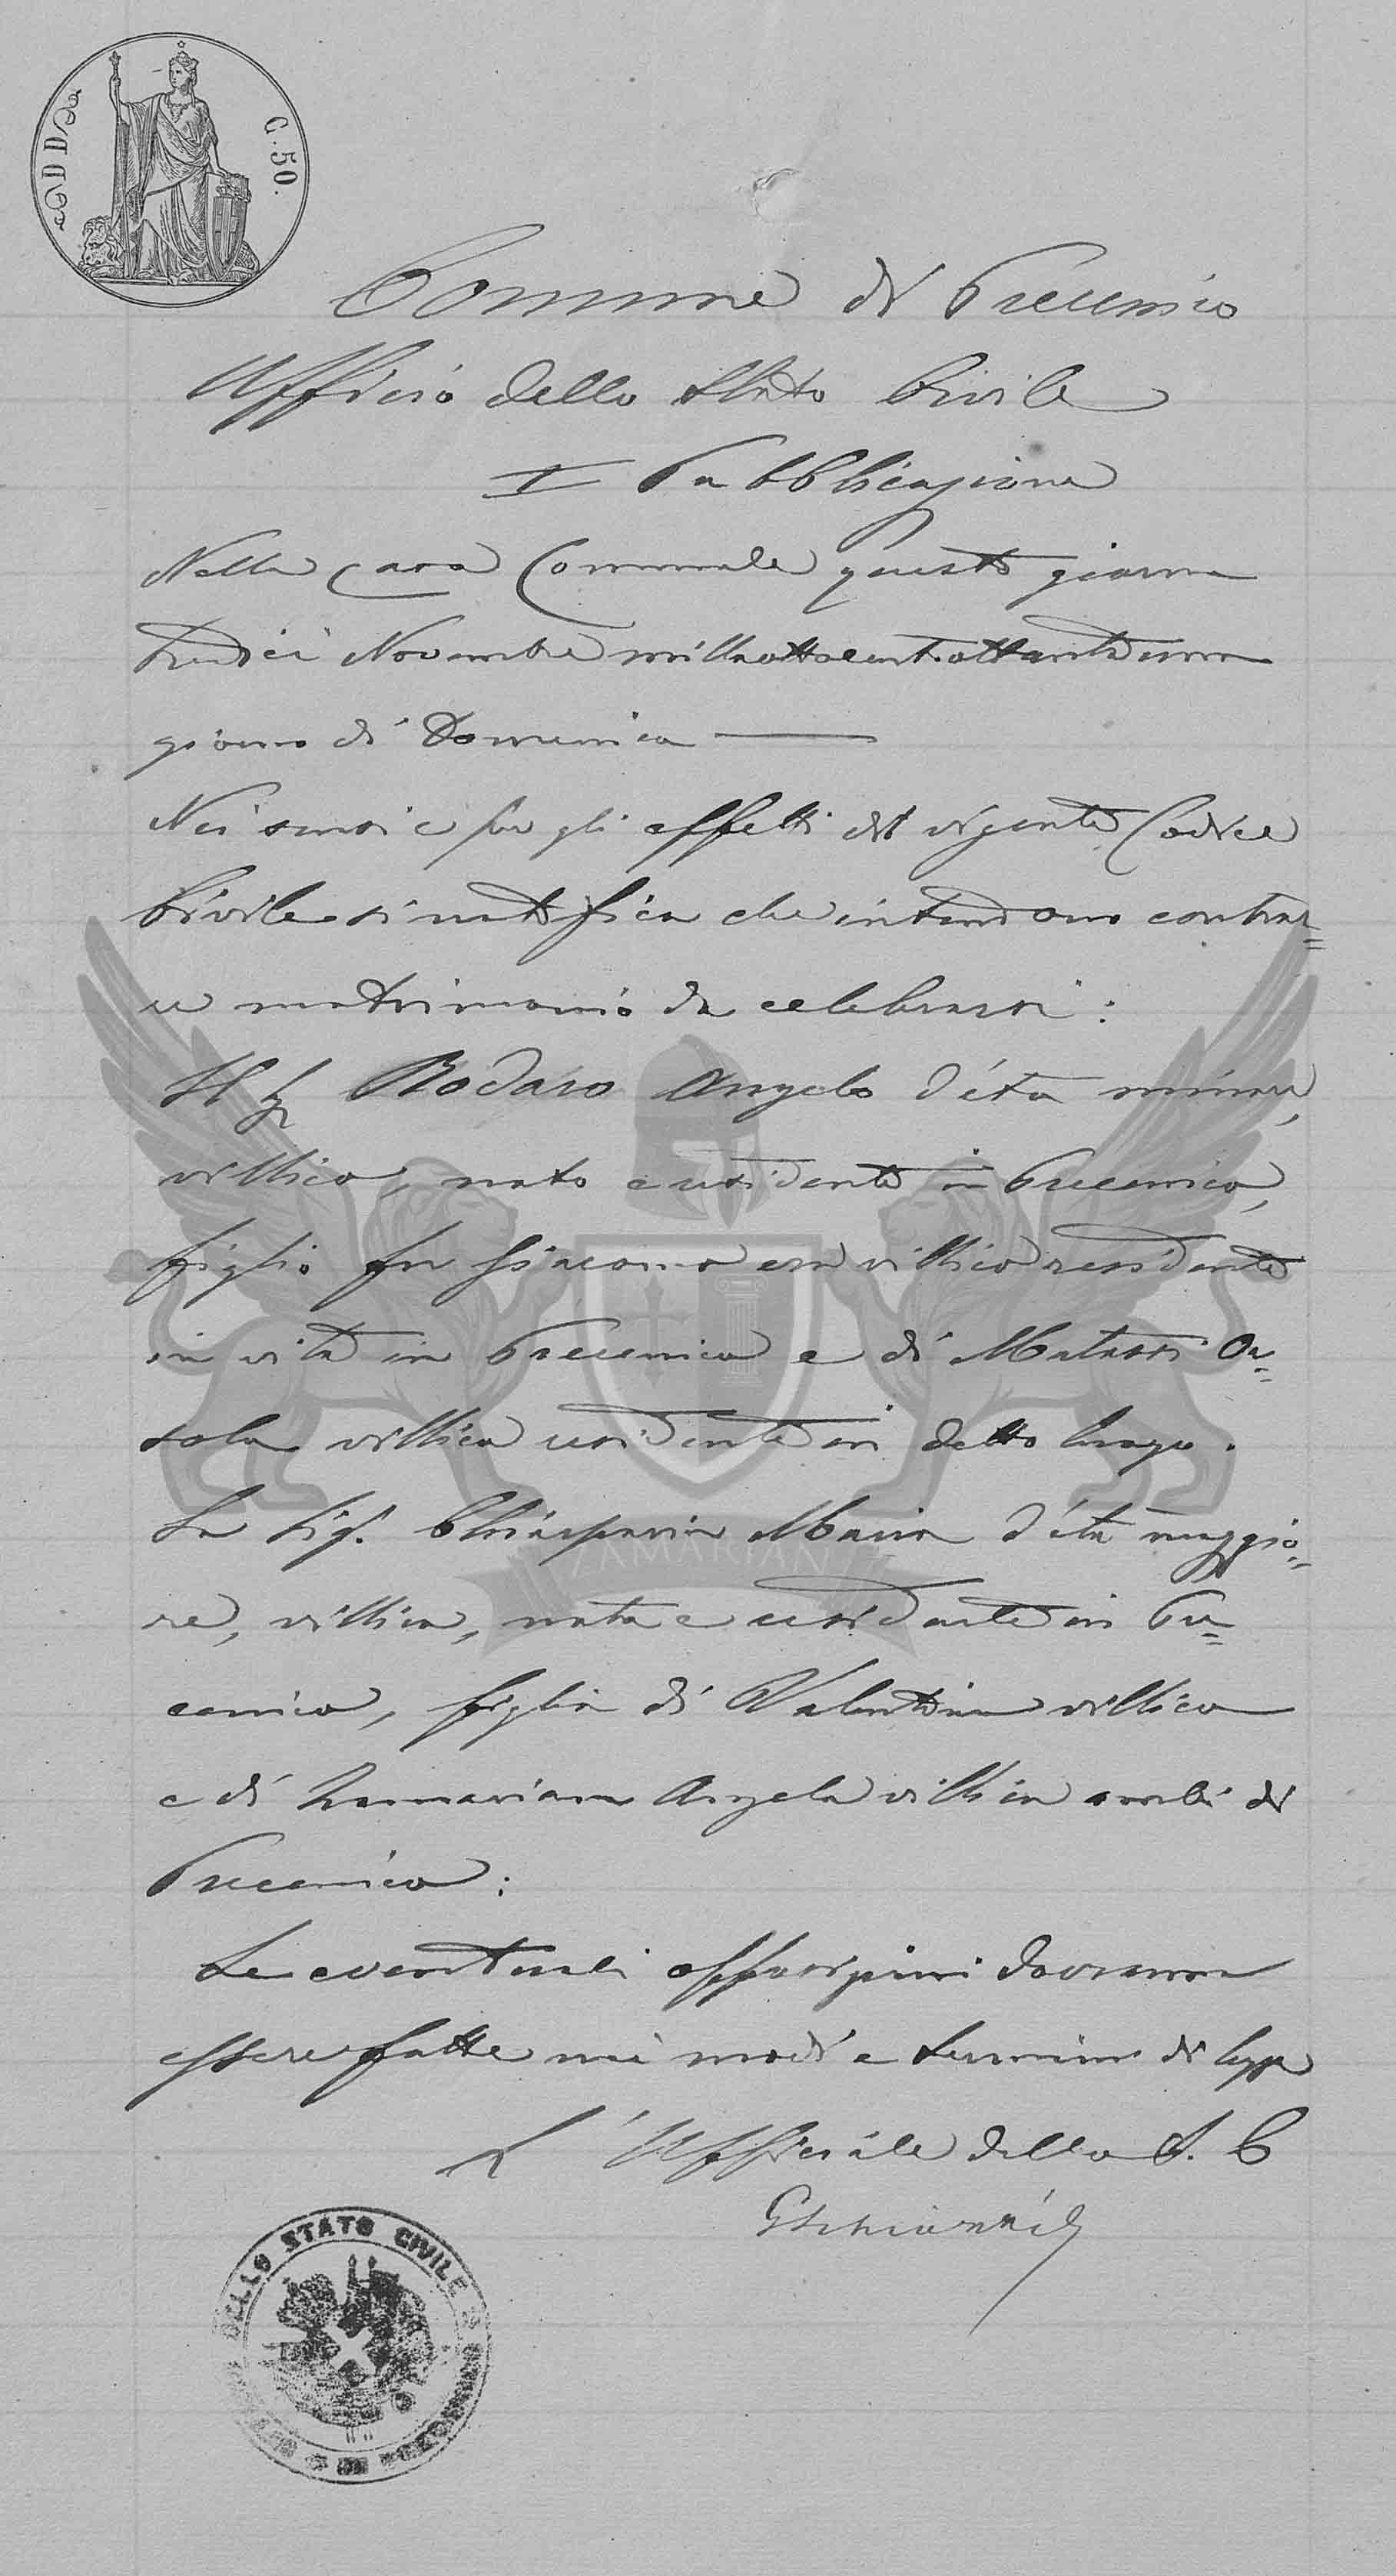 C. 50.
Comune di Precenico
Ufficio dello Stato Civile
I Pubblicazione
Nella casa Comunale questo giorno
tredici Novembre milleottocentottantauno
giorno di Domenica
Nei sensi e per gli effetti del vigente Codice
Civile si notifica che intendono contrar=
re matrimonio da celebrarsi:
Il Sig Rodaro Angelo d'età minore,
villico, nato e residente in Precenico,
figlio fu Giacomo era villico residente
in vita in Precenico e di Matassi Or=
sola villica residente in detto luogo.
La Sigª. Chiasparin Maria d'età maggio=
re, villica, nata e residente in Pre=
cenico, figlia di Valentino villico
e di Zamarian Angela villica ambi di
Precenico:
Le eventuali opposizioni dovranno
essere fatte nei modi e termini di legge
L'Ufficiale dello S. C
DELLO STATO CIVILE
ZAMARIAN